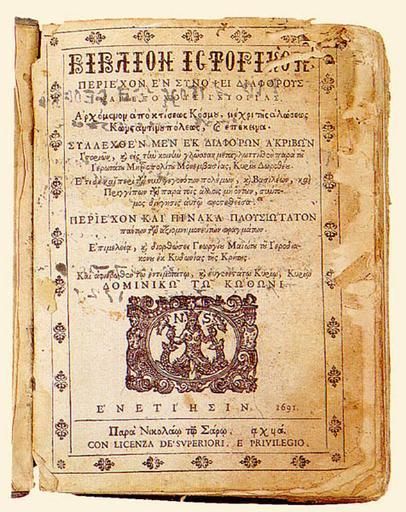 ΒΙΒΛΙΟΝ ΙΣΤΟΡΙΚΟΝ
ΠΕΡΙΕΧΟΝ ΕΝ ΣΥΝΟΨΕΙ ΔΙΑΦΟΡΟΥΣ
ΙΣΤΟΡΙΑΣ
Ἀρχόμενον ἀπὸ κτίσεως Κόσμου, μέχρι τῆς ἁλώσεως
Κωνσταντινουπόλεως, καὶ ἐπέκεινα.
ΣΥΛΛΕΧΘΕΝ ΜΕΝ ΕΚ ΔΙΑΦΟΡΩΝ ΑΚΡΙΒΩΝ
Ἱστοριῶν, καὶ εἰς τὴν κοινὴν γλῶσσαν μεταγλωττισθὲν παρὰ τοῦ
Ἱερωτάτου Μητροπολίτου Μονεμβασίας, Κυρίου Δωροθέου.
πολέμων, καὶ Βασιλέων, καὶ
ΠΕΡΙΕΧΟΝ ΚΑΙ ΠΙΝΑΚΑ ΠΛΟΥΣΙΩΤΑΤΟΝ
πάντων τῶν ἀξιομνημονεύτων πραγμάτων.
Ἐπιμελείᾳ, καὶ διορθώσει Γεωργίου Μαιώτα τοῦ Ἱεροδια-
κόνου ἐκ Κυδωνίας τῆς Κρήτης.
Καὶ ἀφιερωθὲν τῷ ἐντιμοτάτῳ, καὶ εὐγενεστάτῳ Κυρίῳ, Κυρίῳ
ΔΟΜΙΝΙΚΩ ΤΩ ΚΩΘΩΝΙ
N S
ΕΝΕΤΙΗΣΙΝ. 1691.
Παρὰ Νικολάῳ τῷ Σάρῳ. αχϟά.
CON LICENZA DE' SVPERIORI, E PRIVILEGIO.